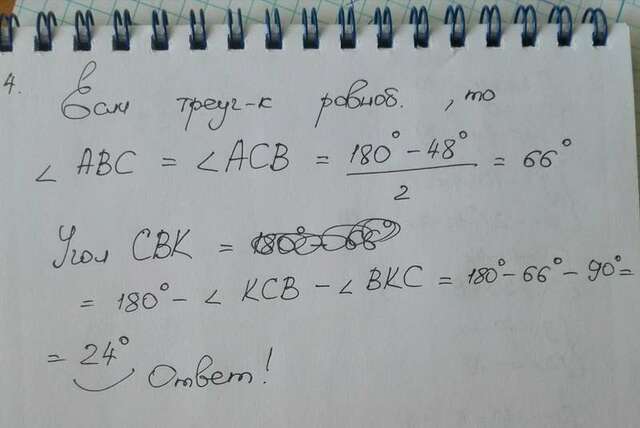 4.
Если треуг-к равноб., то
∠ ABC = ∠ ACB = 180° - 48° / 2 = 66°
Угол CBK =
= 180° - ∠ KCB - ∠ BKC = 180° - 66° - 90° =
= 24° Ответ!